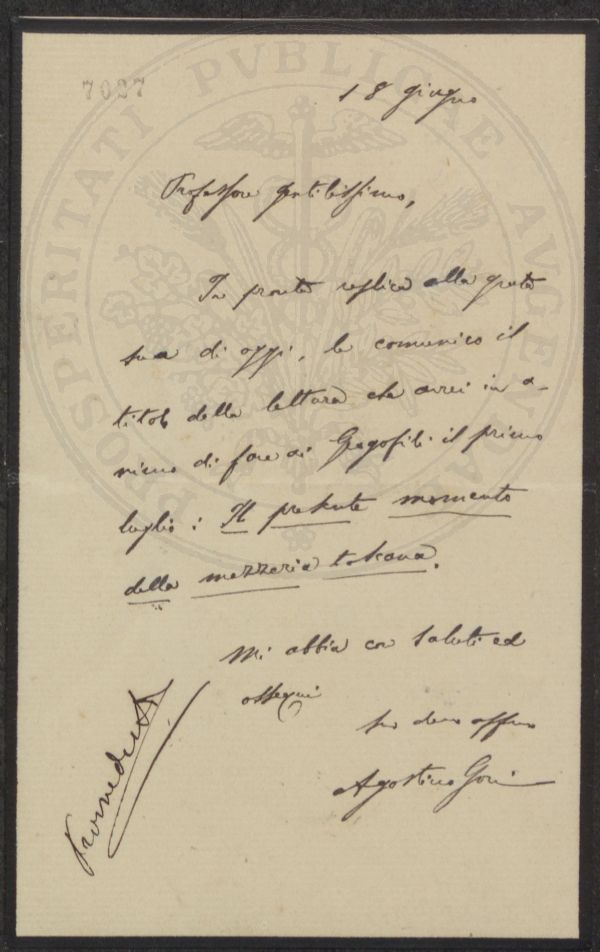 7027
18 giugno
Professore gentilissimo,
In pronta replica alla grata
sua di oggi, le comunico il
titolo della lettura che avrei in a-
nimo di fare ai Georgofili il primo
luglio: Il presente momento
della mezzeria toscana.
Mi abbia con saluti ed
ossequi
suo devmo affmo
Agostino Gori
Provveduto
PROSPERITATI PVBLICAE AVGENDAE